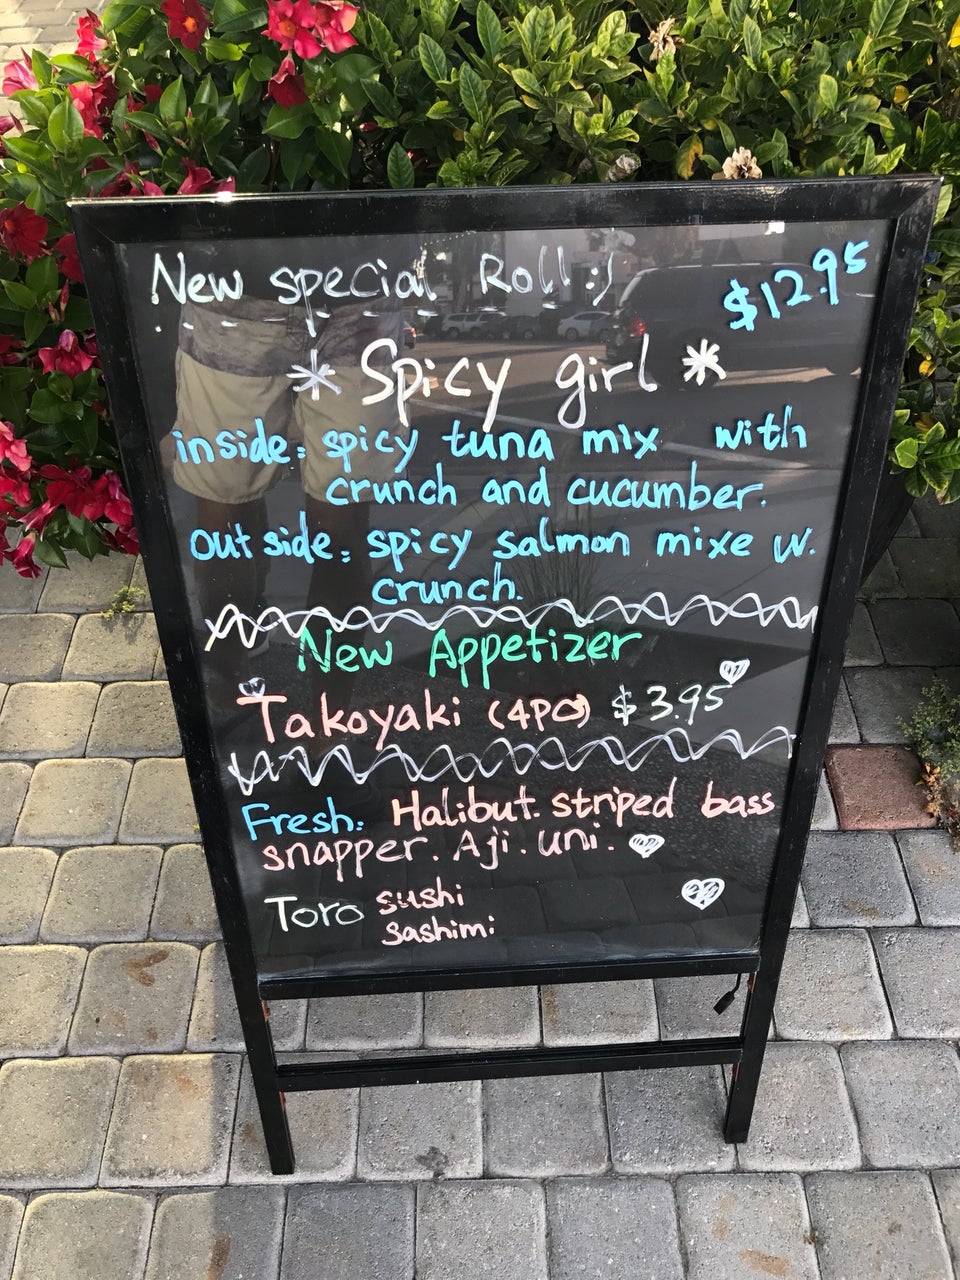 New special Roll :)
$12.95
* Spicy girl *
inside: spicy tuna mix with
crunch and cucumber.
outside: spicy salmon mixe w.
crunch.
New Appetizer
Takoyaki (4PC) $3.95
Fresh: Halibut. striped bass
snapper. Aji. uni.
Toro sushi
sashimi